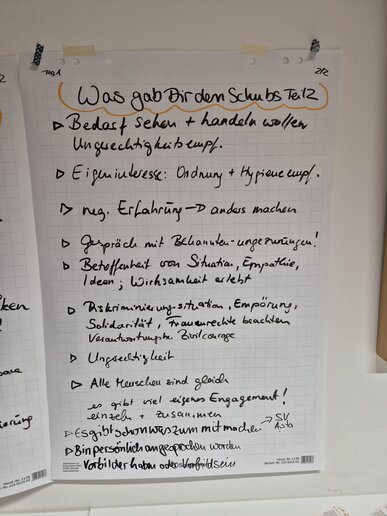 Tag 1
2/2
Was gab Dir den Schubs Teil 2
▷ Bedarf sehen + handeln wollen
Ungerechtigkeitsempf.
▷ Eigeninteresse: Ordnung + Hygieneempf.
▷ neg. Erfahrung → anders machen
▷ Gespräch mit Bekannten - ungezwungen!
▷ Betroffenheit von Situation, Empathie,
Ideen; Wirksamkeit erlebt
▷ Diskriminierung-situation, Empörung,
Solidarität, Frauenrechte beachten
Zivilcourage
▷ Ungerechtigkeit
▷ Alle Menschen sind gleich
es gibt viel eigenes Engagement!
einzeln + zusammen
▷ Es gibt schon was zum mitmachen → SV
Asta
▷ Bin persönlich angesprochen worden
Vorbilder haben oder Vorbild sein